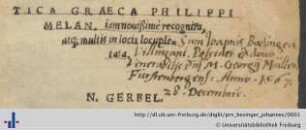 TICA GRAECA PHILIPPI
MELAN. iam nouissimè recognita,
atq; multis in locis locuple-
tata.
Sum Joannis Boesinger
Villingani. Possideo ex dono
Venerabilis Dni M. Georgij Mülleri
Fürstenbergens. Anno. 1567.
28 Decembris.
N. GERBEL.
http://dl.ub.uni-freiburg.de/diglit/prv_besinger_johannes/0001
© Universitätsbibliothek Freiburg